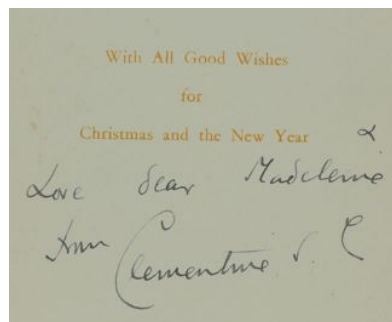 With All Good Wishes
for
Christmas and the New Year &
Love dear Madeleine
from Clementine S. C